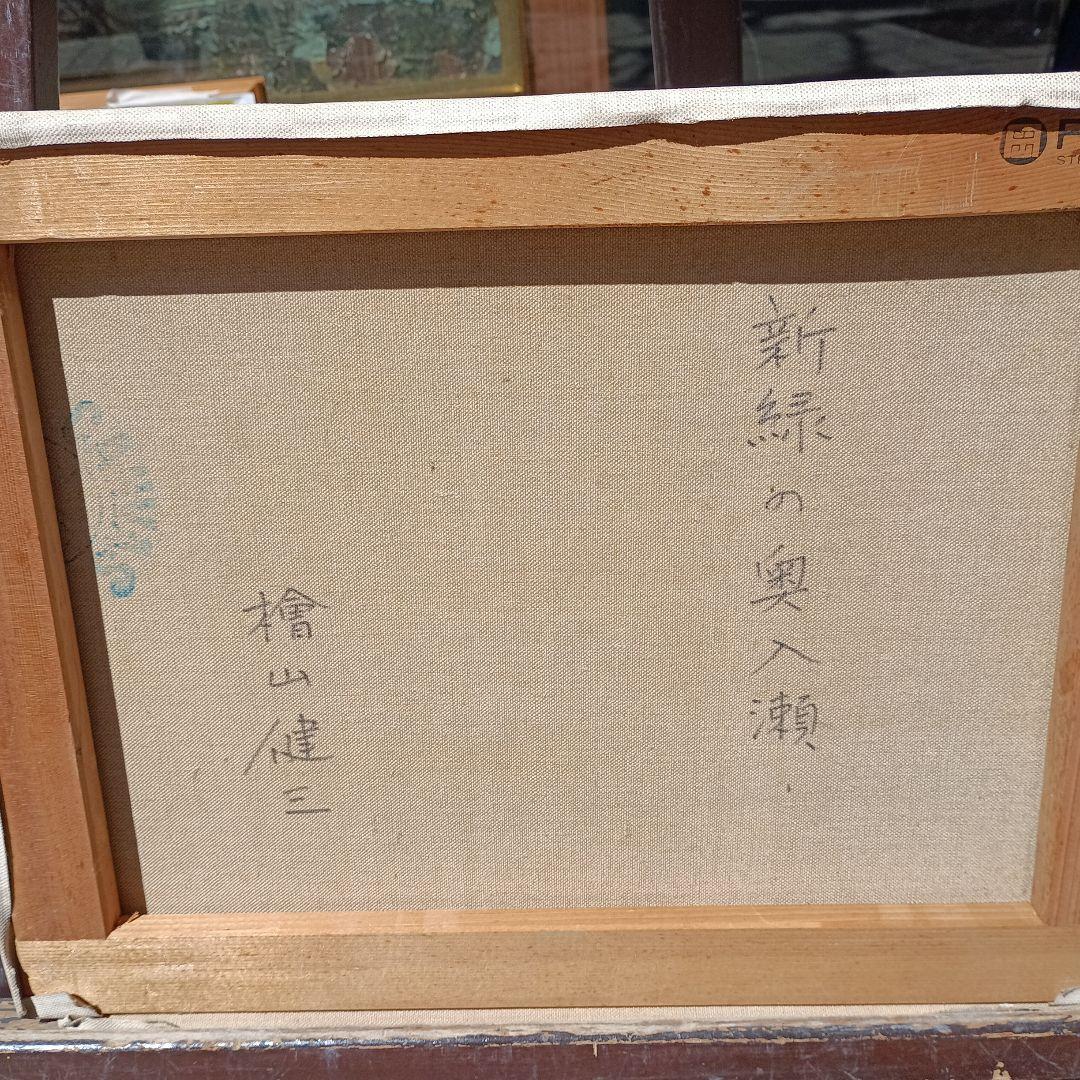 新緑の奥入瀬
檜山健三